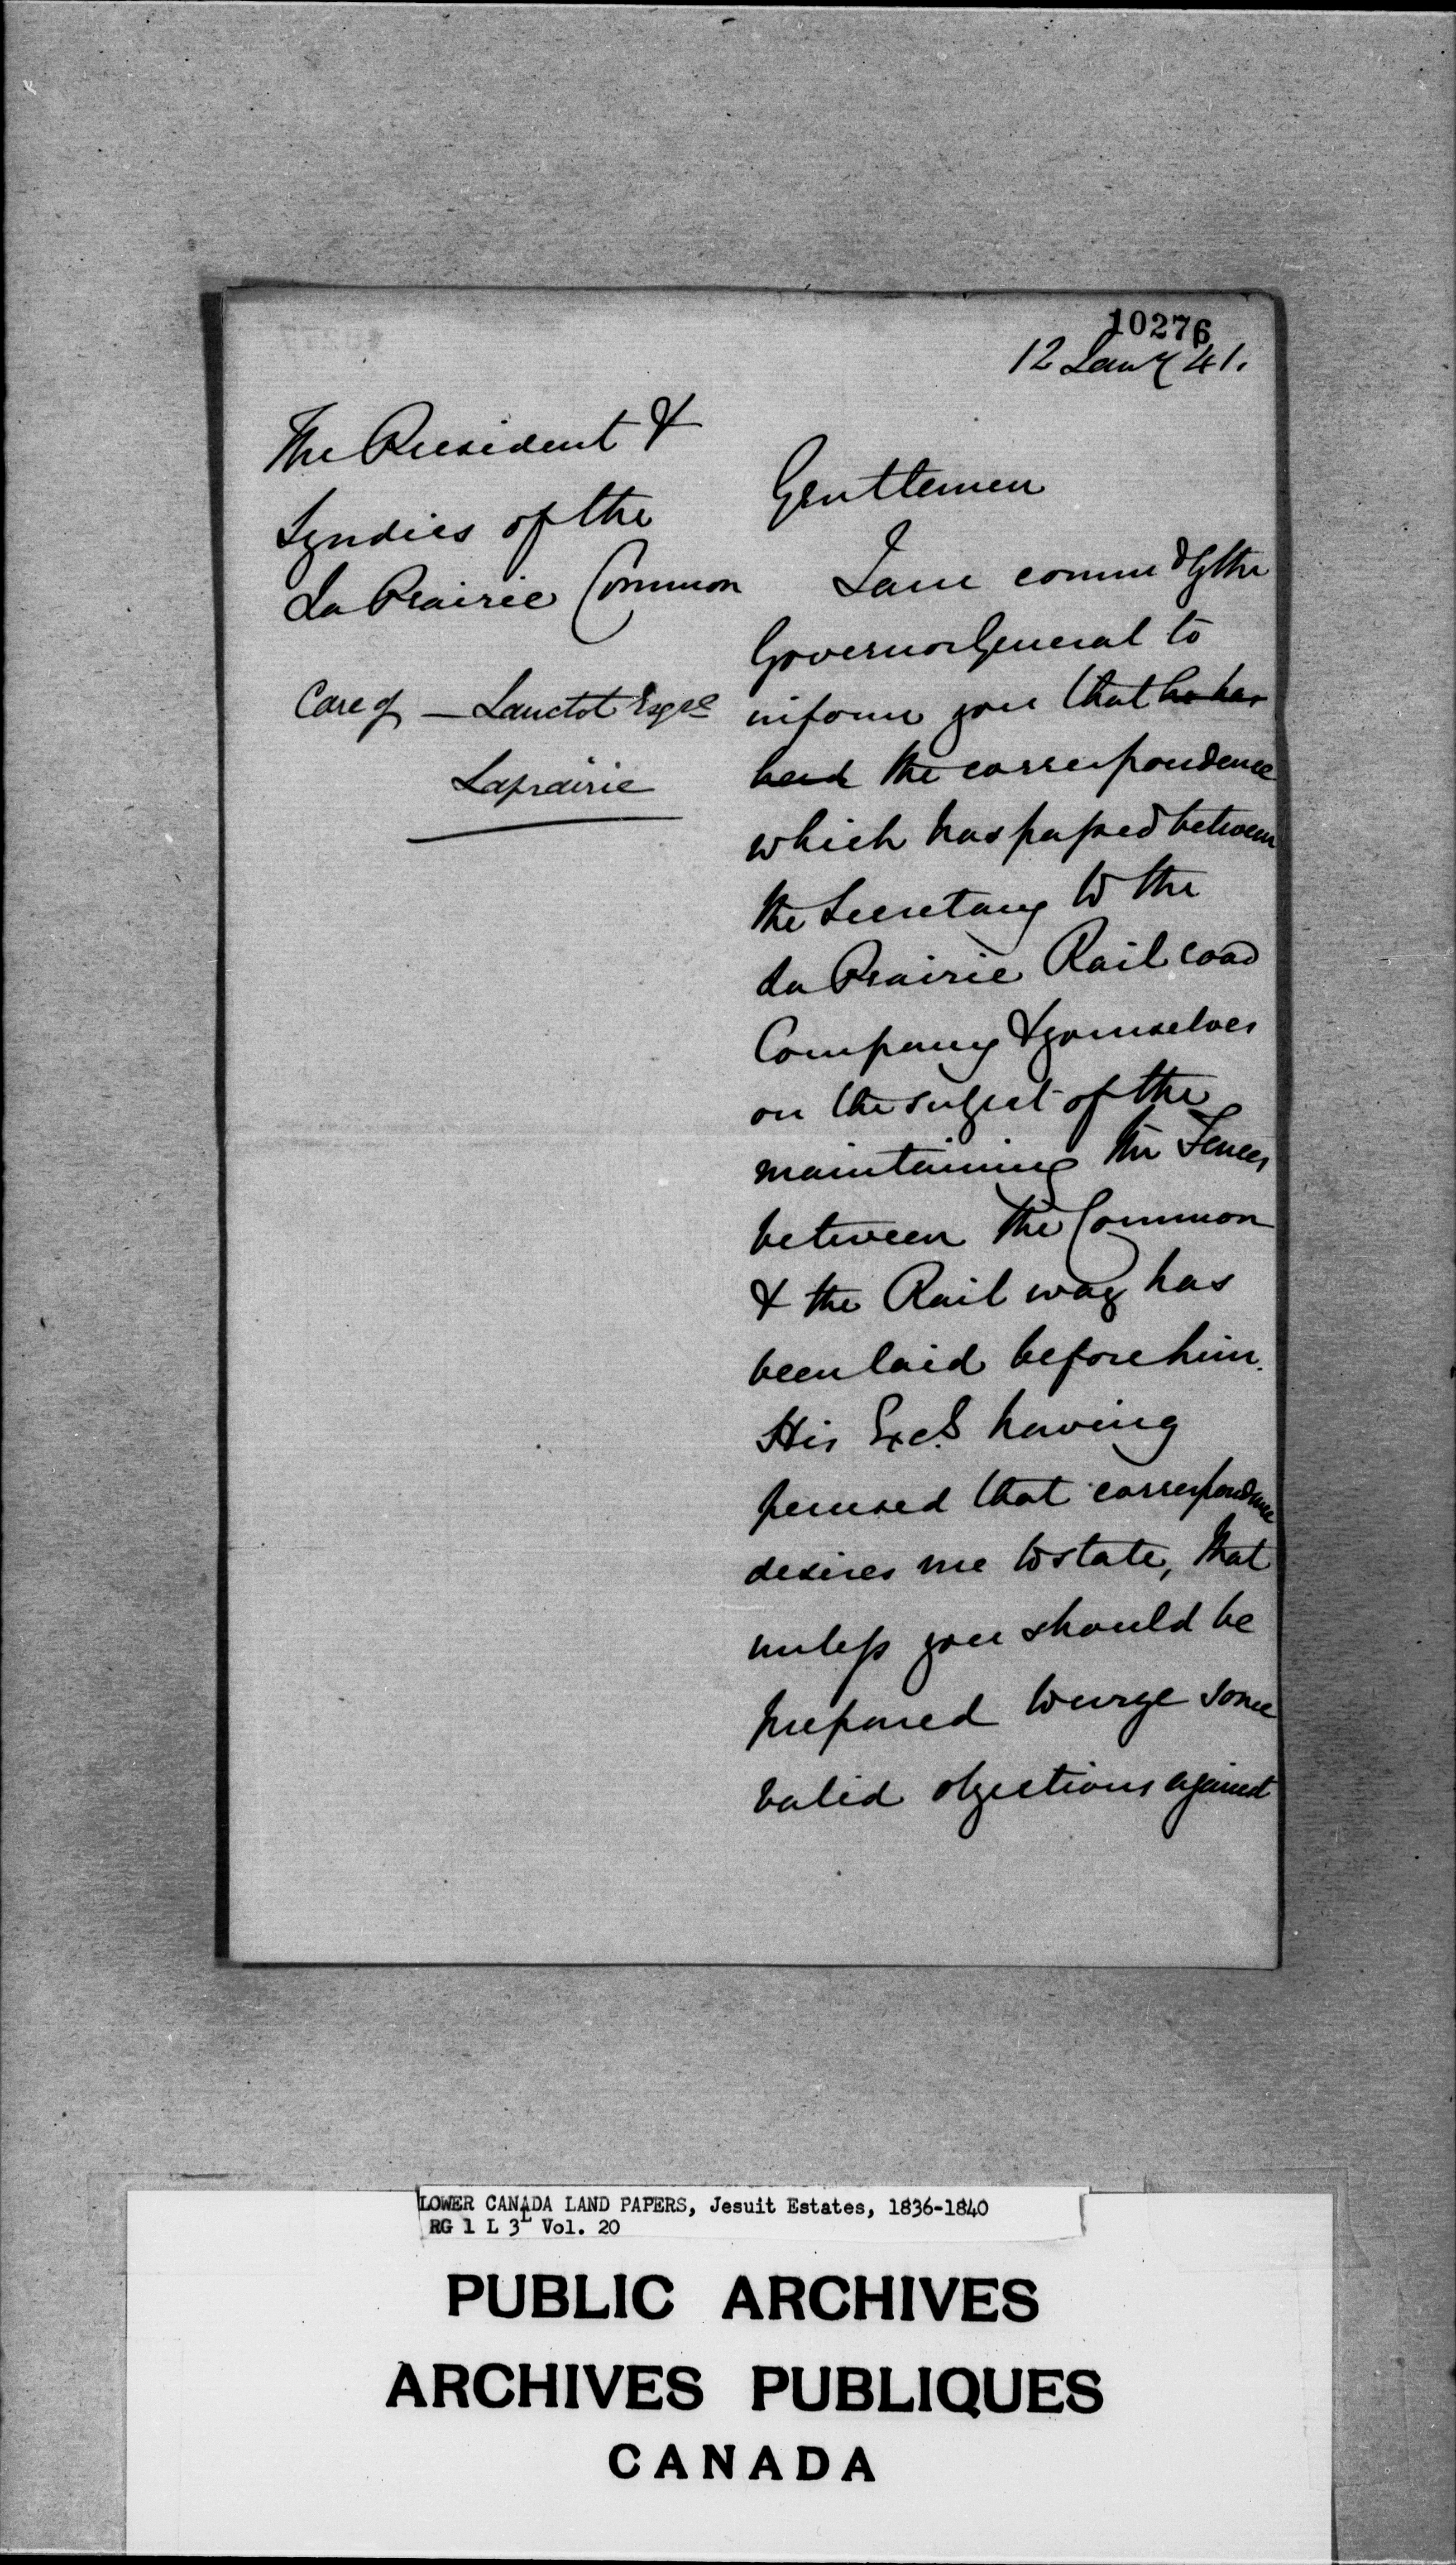 10276
12 Jany 41.
The President &
Syndics of the
La Prairie Common
Care of — Lanctot Esqre
Laprairie
Gentlemen
I am commd by the
Governor General to
inform you that he has
had the correspondence
which has passed between
the Secretary to the
La Prairie Rail road
Company & yourselves
on the subject of the
maintaining the Fences
between the Common
& the Rail way has
been laid before him.
His Excy having
perused that correspondence
desires me to state, that
unless you should be
prepared to urge some
valid objections against
LOWER CANADA LAND PAPERS, Jesuit Estates, 1836-1840
RG 1 L 3L Vol. 20
PUBLIC ARCHIVES
ARCHIVES PUBLIQUES
CANADA